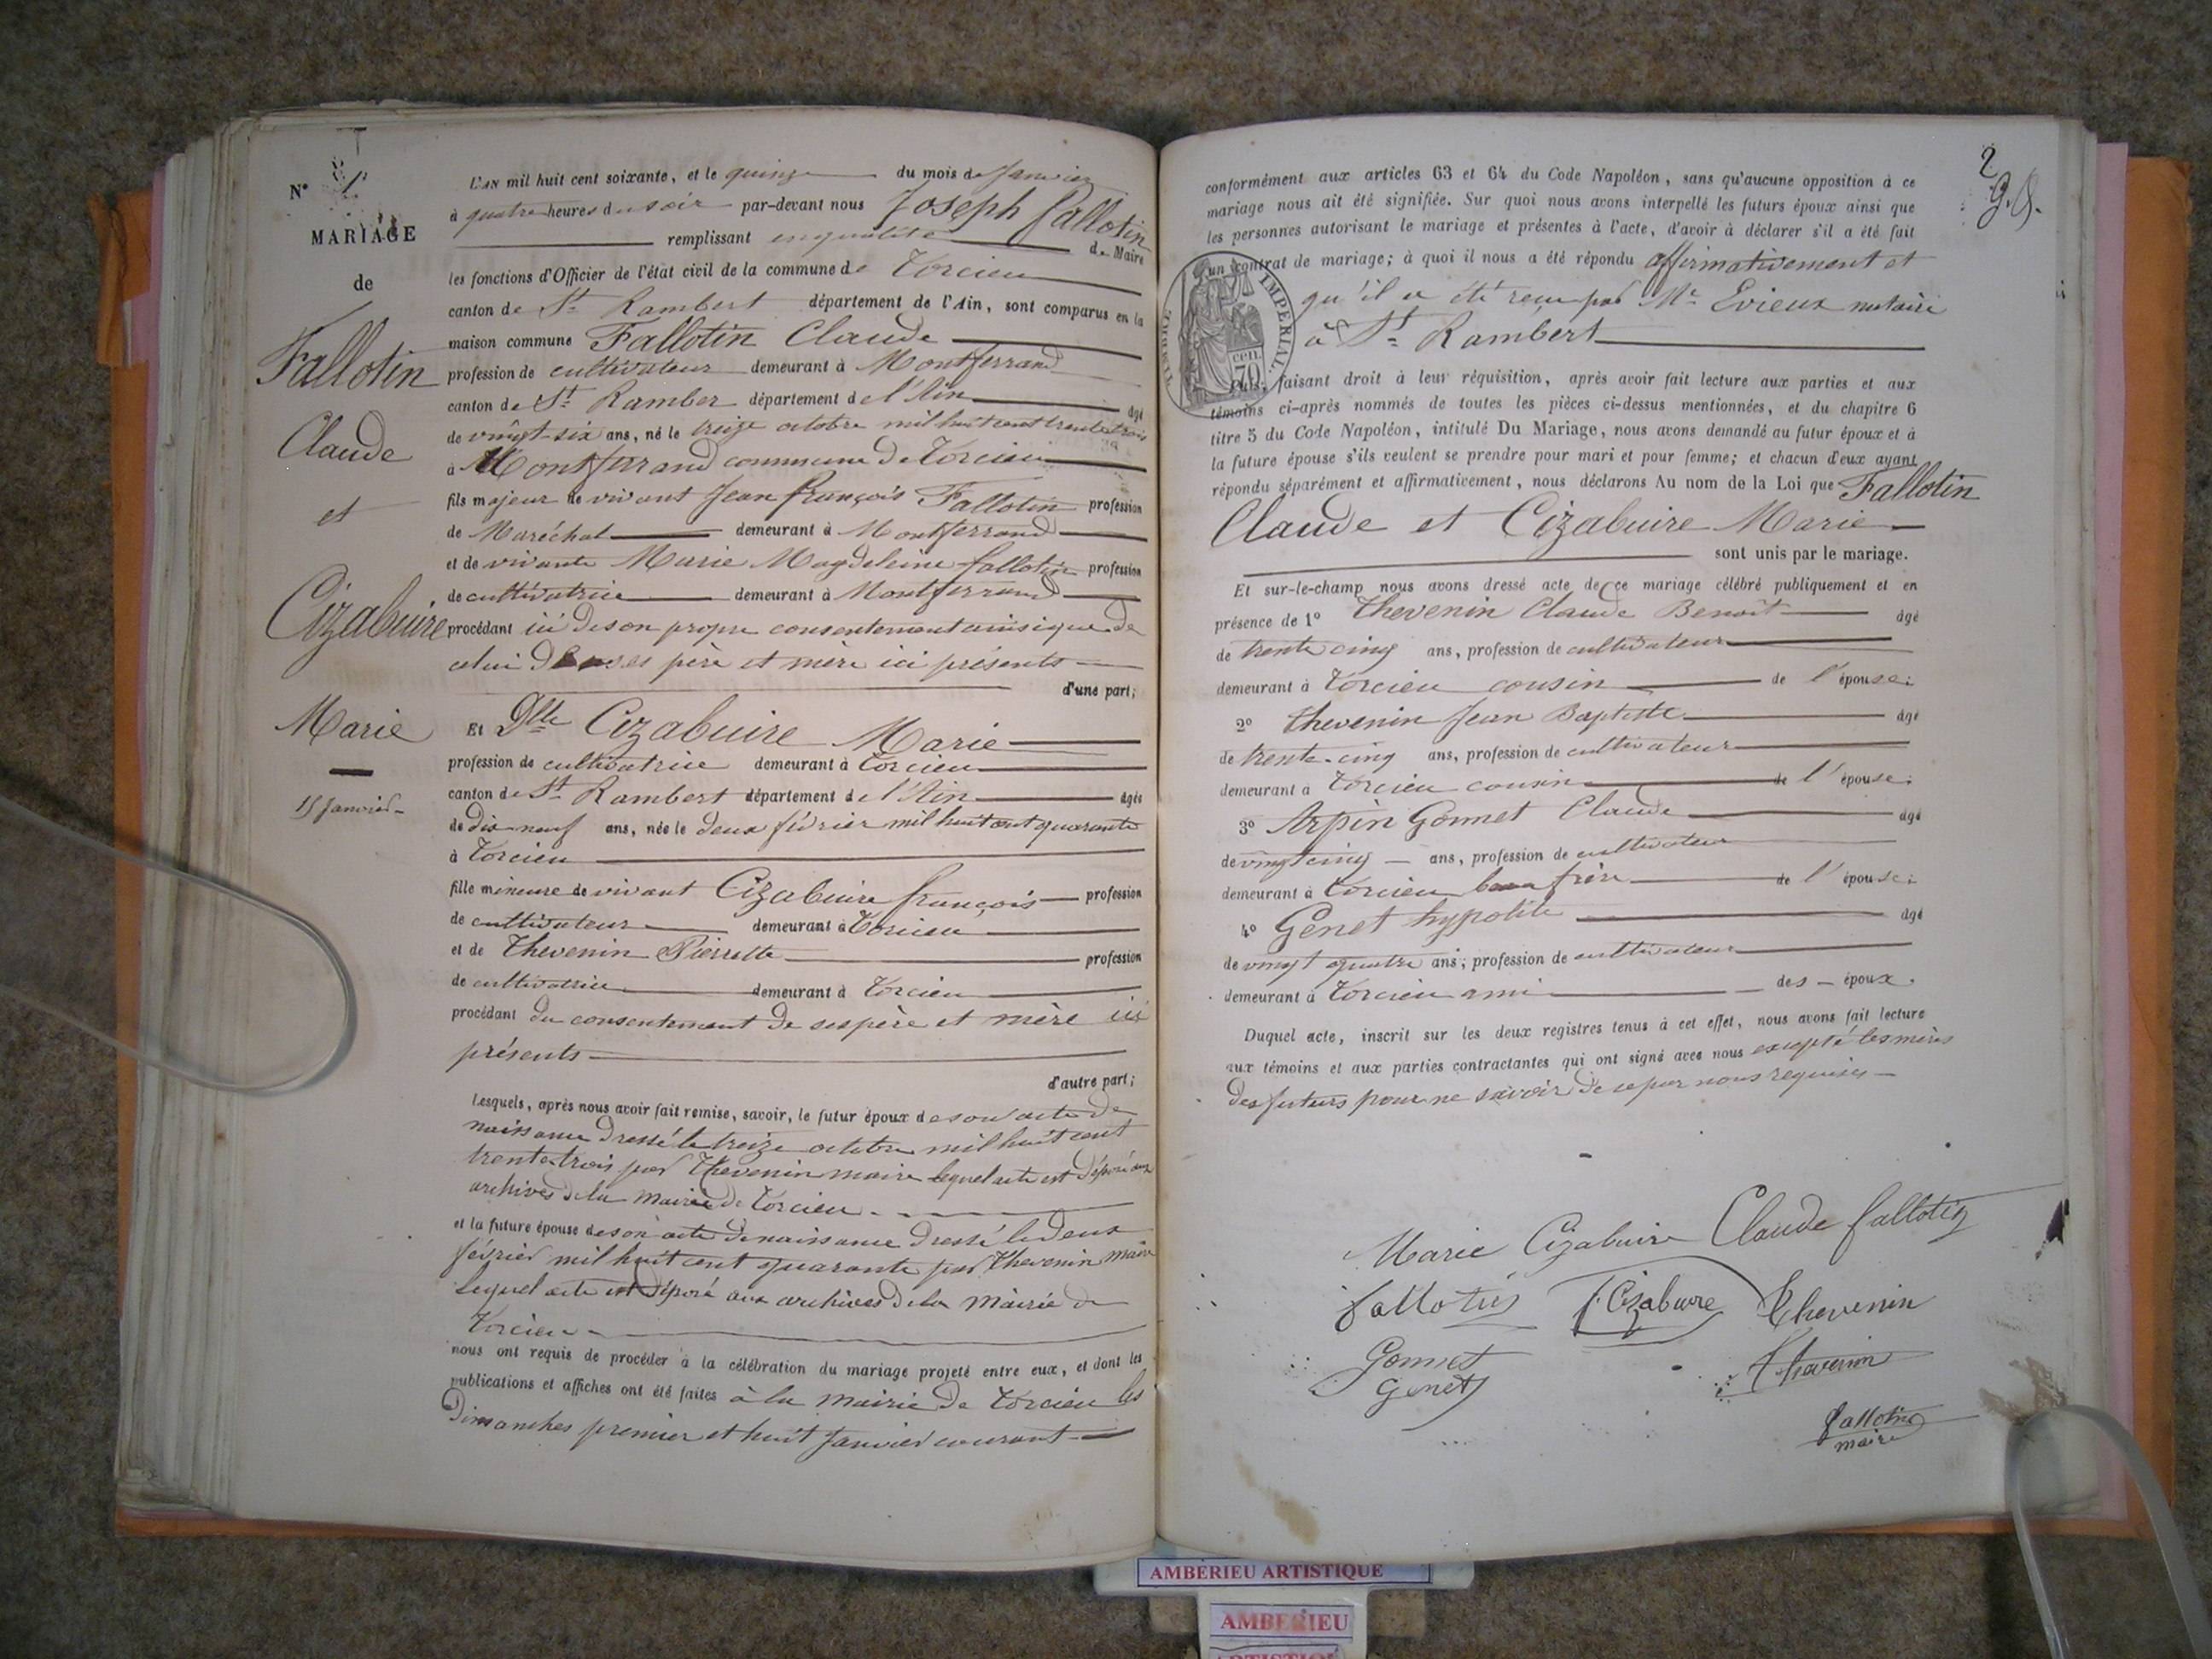 N° 1
MARIAGE
de
Fallotin
Claude
et
Cizabuire
Marie
15 Janvier
L'AN mil huit cent soixante, et le quinze du mois de Janvier
à quatre heures du soir par-devant nous Joseph fallotin
remplissant en qualité de Maire
les fonctions d'Officier de l'état civil de la commune de Torcieu
canton de St Rambert département de l'Ain, sont comparus en la
maison commune Fallotin Claude
profession de cultivateur demeurant à Montferrand
canton de St Ramber département de l'Ain âgé
de vingt-six ans, né le treize octobre mil huit cent trente trois
à Montferrand commune de Torcieu
fils majeur de vivant Jean françois Fallotin profession
de Maréchal demeurant à Montferrand
et de vivante Marie Magdeleine fallotin profession
de cultivatrice demeurant à Montferrand
procédant ici de son propre consentement ainsi que de
celui de ses père et mère ici présents
d'une part;
Et Dlle Cizabuire Marie
profession de cultivatrice demeurant à Torcieu
canton de St Rambert département de l'Ain âgée
de dix neuf ans, née le deux février mil huit cent quarante
à Torcieu
fille mineure de vivant Cizabuire françois profession
de cultivateur demeurant à Torcieu
et de Thevenin Pierrette profession
de cultivatrice demeurant à Torcieu
procédant du consentement de ses père et mère ici
présents
d'autre part;
Lesquels, après nous avoir fait remise, savoir, le futur époux de son acte de
naissance dressé le treize octobre mil huit cent
trente-trois par Thevenin maire lequel acte est déposé aux
archives de la Mairie de Torcieu
et la future épouse de son acte de naissance dressé le deux
février mil huit cent quarante par Thevenin maire
lequel acte est déposé aux archives de la Mairie de
Torcieu
nous ont requis de procéder à la célébration du mariage projeté entre eux, et dont les
publications et affiches ont été faites à la Mairie de Torcieu les
Dimanches premier et huit Janvier courant
2
conformément aux articles 63 et 64 du Code Napoléon, sans qu'aucune opposition à ce
mariage nous ait été signifiée. Sur quoi nous avons interpellé les futurs époux ainsi que
les personnes autorisant le mariage et présentes à l'acte, d'avoir à déclarer s'il a été fait
un contrat de mariage; à quoi il nous a été répondu affirmativement et
qu'il a été reçu par Me Evieux notaire
à St Rambert
TIMBRE IMPERIAL
CEN. 70
Puis, faisant droit à leur réquisition, après avoir fait lecture aux parties et aux
témoins ci-après nommés de toutes les pièces ci-dessus mentionnées, et du chapitre 6
titre 5 du Code Napoléon, intitulé Du Mariage, nous avons demandé au futur époux et à
la future épouse s'ils veulent se prendre pour mari et pour femme; et chacun d'eux ayant
répondu séparément et affirmativement, nous déclarons Au nom de la Loi que Fallotin
Claude et Cizabuire Marie
sont unis par le mariage.
Et sur-le-champ nous avons dressé acte de ce mariage célébré publiquement et en
présence de 1° Thevenin Claude Benoit âgé
de trente cinq ans, profession de cultivateur
demeurant à Torcieu cousin de l'épouse;
2° Thevenin Jean Baptiste âgé
de trente-cinq ans, profession de cultivateur
demeurant à Torcieu cousin de l'épouse;
3° Arpin Gonnet Claude âgé
de vingt cinq ans, profession de cultivateur
demeurant à Torcieu beau frère de l'épouse;
4° Genet hypolite âgé
de vingt quatre ans; profession de cultivateur
demeurant à Torcieu ami des époux.
Duquel acte, inscrit sur les deux registres tenus à cet effet, nous avons fait lecture
aux témoins et aux parties contractantes qui ont signé avec nous excepté les mères
des futurs pour ne savoir de ce par nous requises
Marie Cizabuire Claude fallotin
fallotin f. Cizabuire Thevenin
Gonnet Thevenin
Genet
fallotin
maire
AMBERIEU ARTISTIQUE
AMBERIEU
ARTISTIQUE